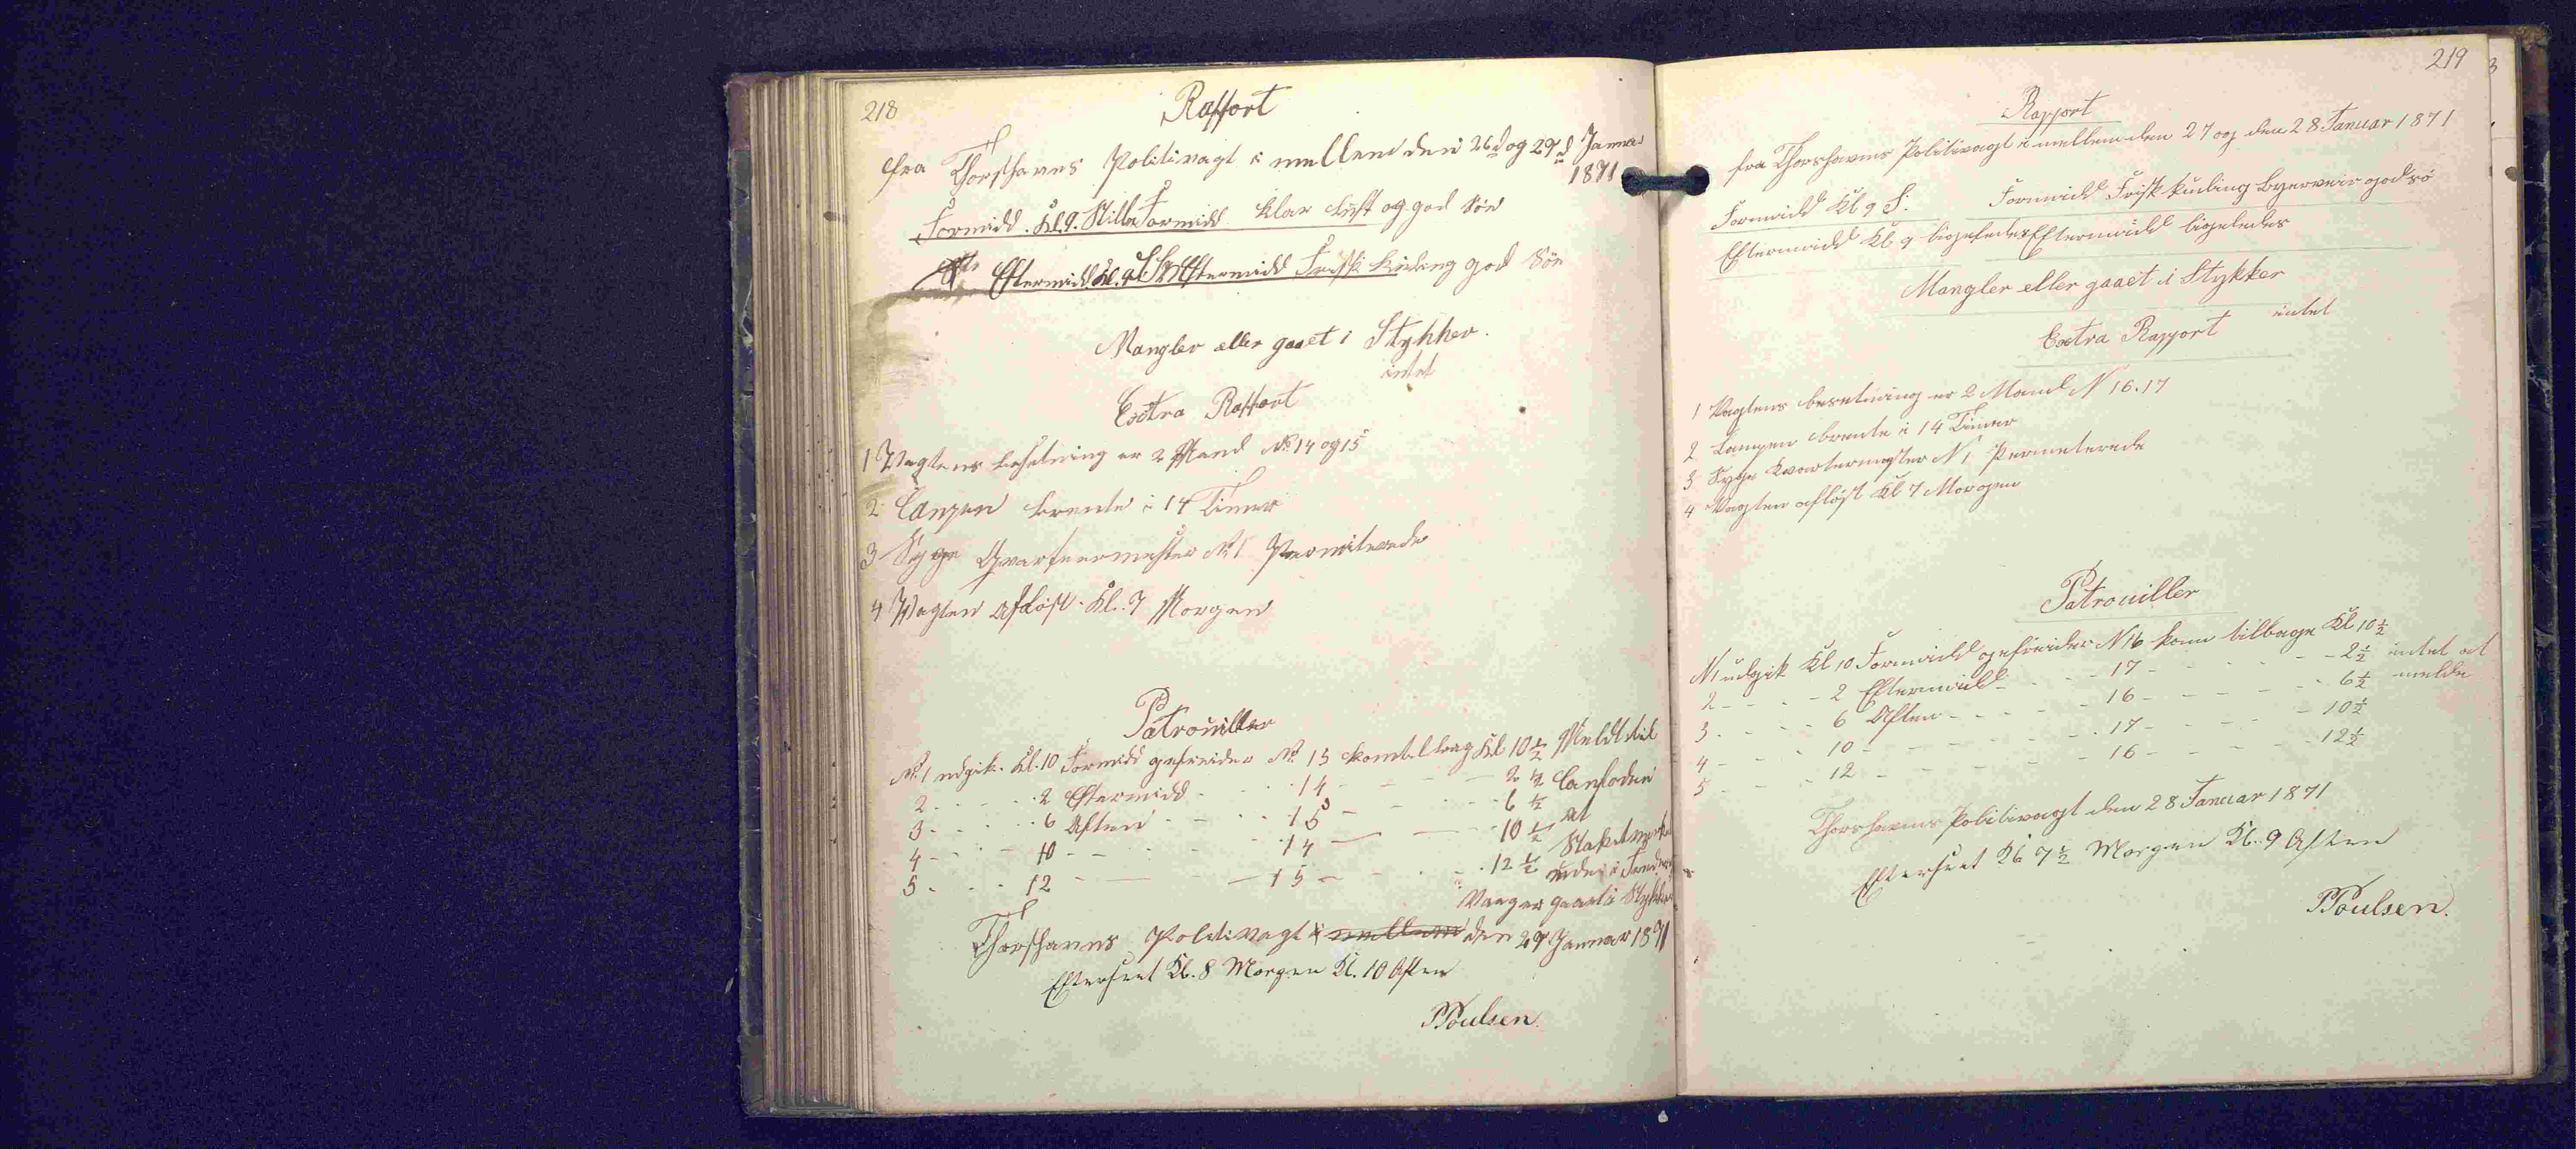 218
Rapport
fra Thorshavns Politivagt i mellem den 26d og 27d Januar
1871
Formidd. Kl. 9. Stille Formidd. klar Luft og god Söe
Eftermidd. Kl. 9 Eftermidd Frisk Kuling god Söe
Mangler eller gaaet i Stykker.
intet
Extra Rapport
1 Vagtens besetning er 2 Mand No 14 og 15
2 Lampen brente i 14 Timer
3 Syge Qvarteermester No 1 Permiterede
4 Vagten aflöst. Kl. 7 Morgen
Patrouiller
No 1 udgik. Kl. 10 Formidd gefreider No 15 kom tilbag Kl 10 1/2 Meldt til
2 - - - 2 Eftermidd - - - 14 - - - 2 1/2
3 - - - 6 Aften - - - 15 - - - 6 1/2 at
4 - - - 10 - - - 14 - - - 10 1/2
5 - - - 12 - - - 15 - - - 12 1/2
gaaet i Stykker
Thorshavns Politivagt i mellem den 27 Januar 1871
Efterseet Kl. 8 Morgen Kl. 10 Aften
PPoulsen.
219
Rapport
fra Thorshavns Politivagt i mellem den 27 og den 28 Januar 1871
Formidd Kl 9 S. Formidd Frisk kuling Byerveir god sö
Eftermidd Kl 9 ligeledes Eftermidd ligeledes
Mangler eller gaaet i Stykker
intet
Extra Rapport
1 Vagtens besetning er 2 Mand N 16. 17
2 Lampen brente i 14 Timer
3 Syge Kvartermester N 1 Permeterede
4 Vagten aflöst Kl 7 Morgen
Patrouiller
N 1 udgik Kl 10 Formidd gefreider N 16 kom tilbage Kl 10 1/2
2 - - - 2 Eftermidd - - - 17 - - - 2 1/2 intet at
3 - - - 6 Aften - - - 16 - - - 6 1/2 melde
4 - - - 10 - - - 17 - - - 10 1/2
5 - - - 12 - - - 16 - - - 12 1/2
Thorshavns Politivagt den 28 Januar 1871
Efterseet Kl 7 1/2 Morgen Kl. 9 Aften
PPoulsen.